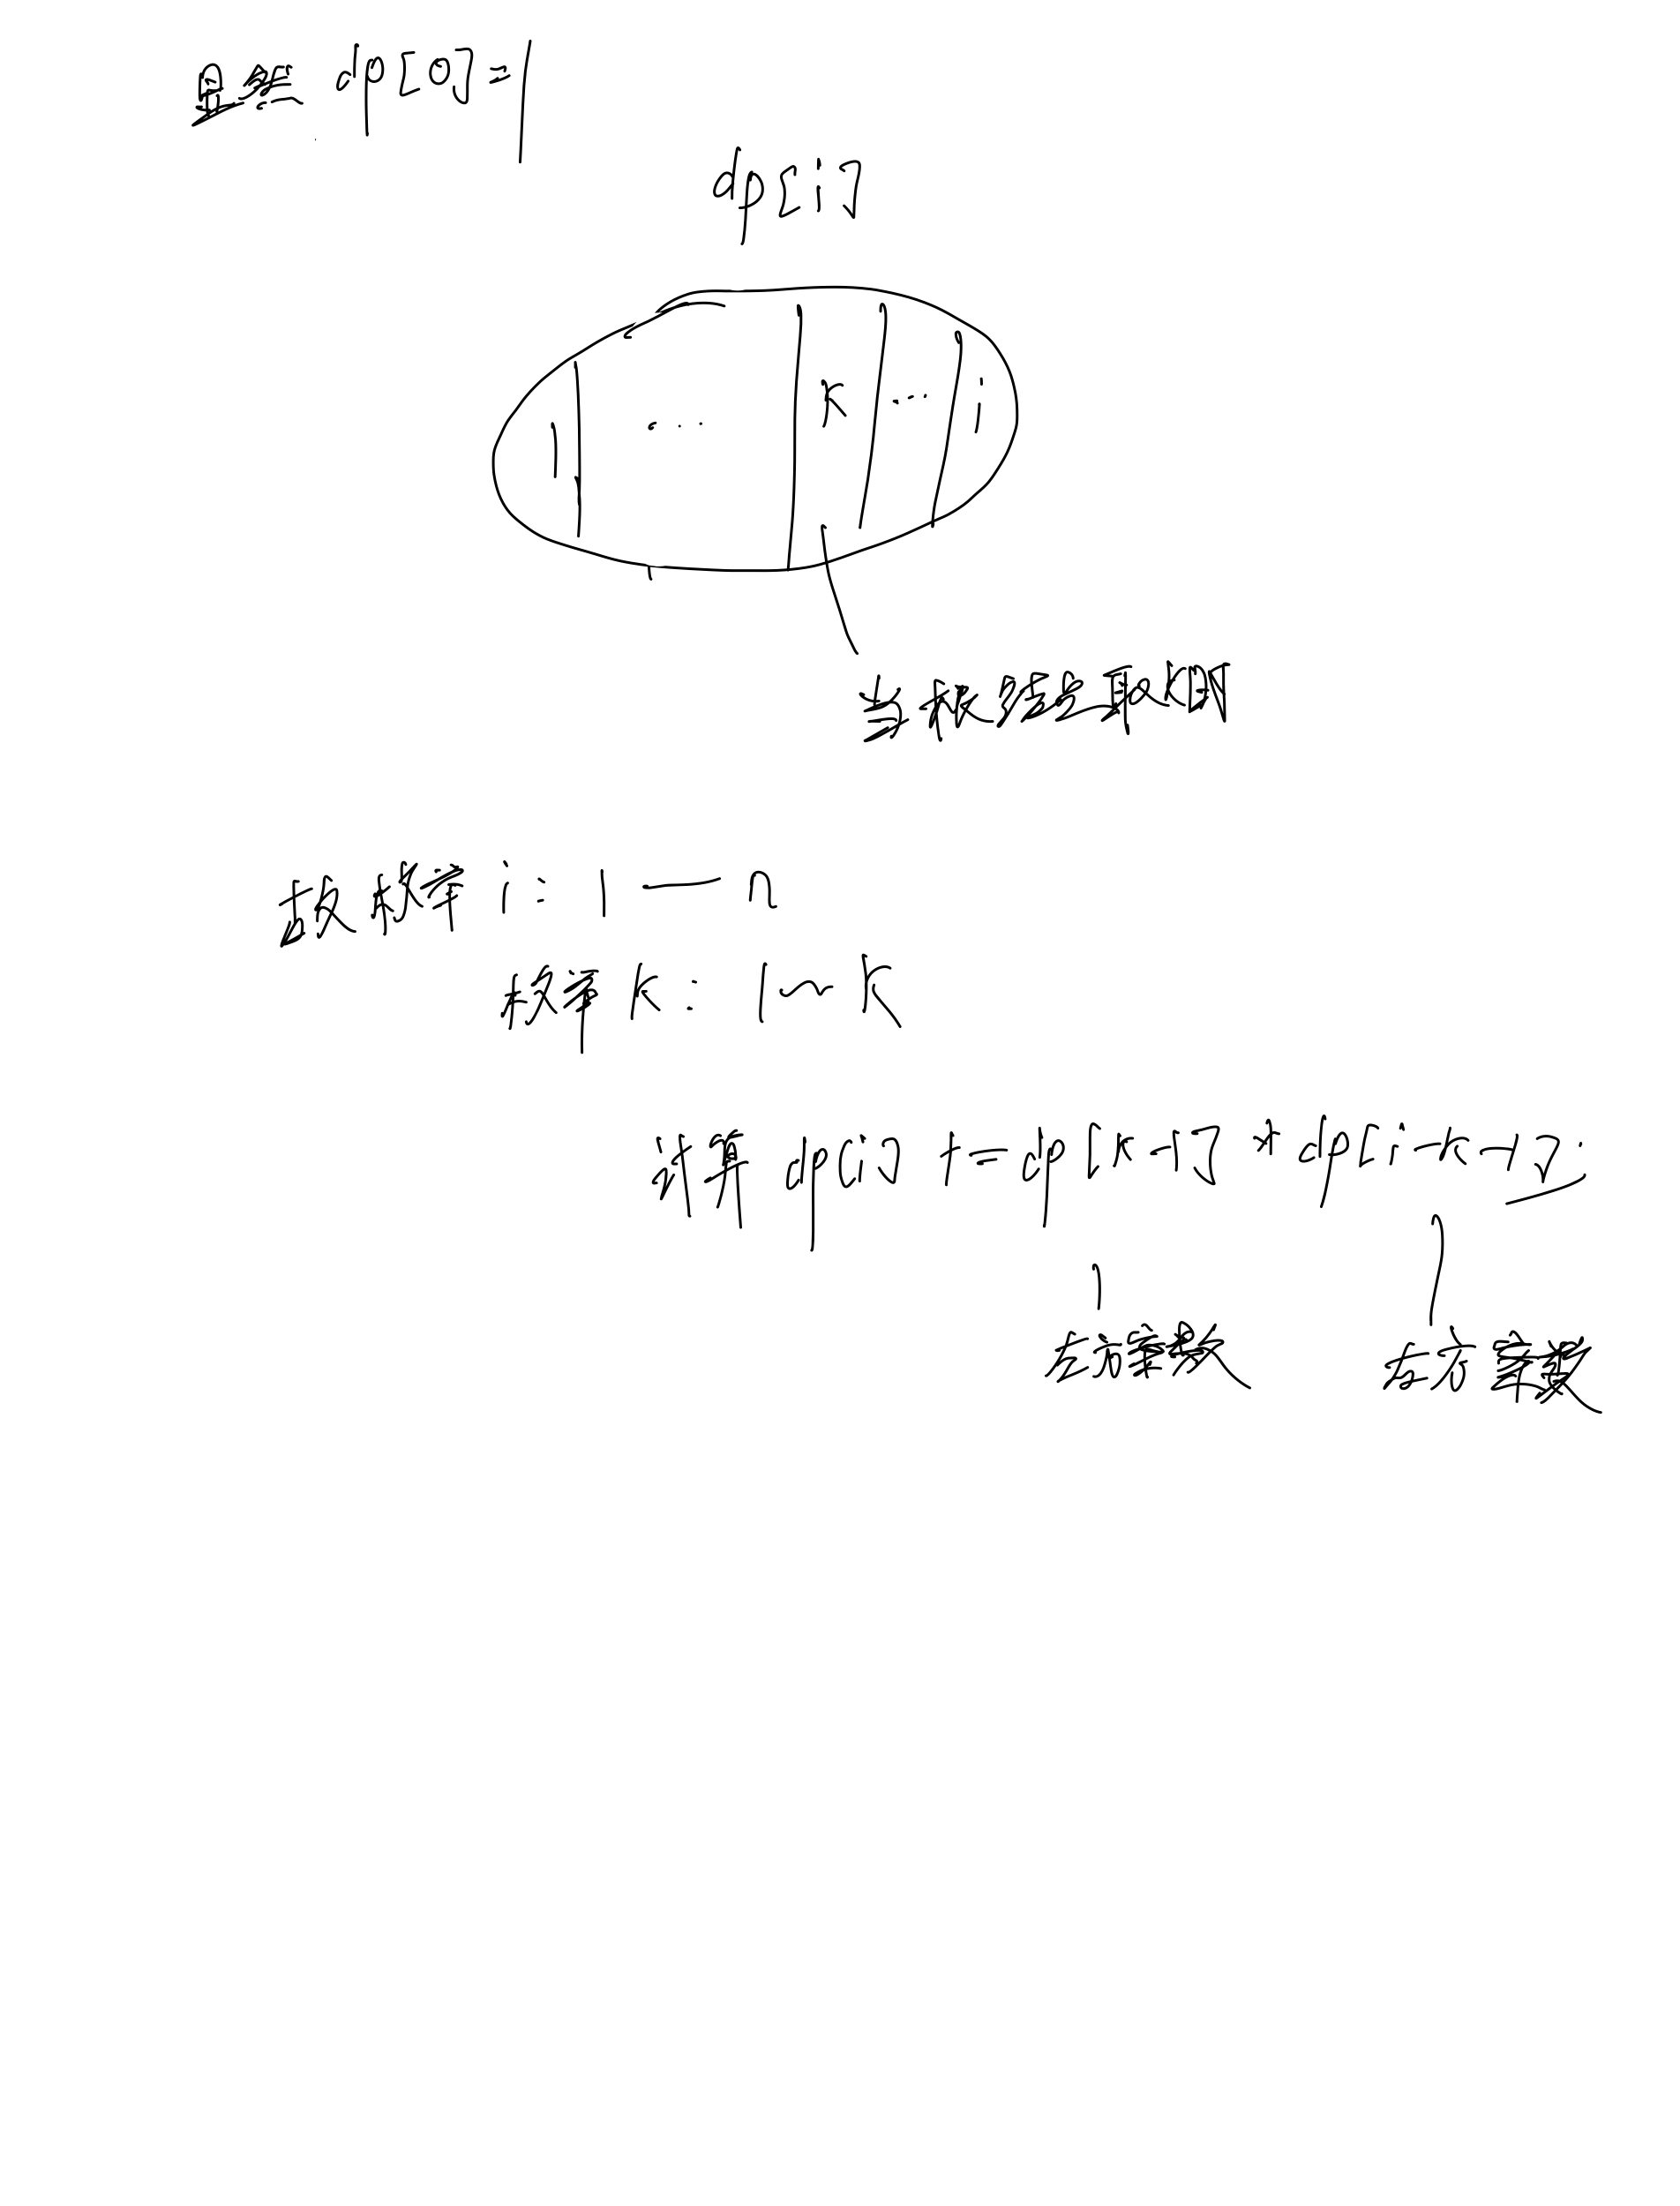 显然 dp[0]=1
dp[i]
1 ... k ... i
当根结点取k时
故枚举 i: 1 — n
枚举 k: 1~k
计算 dp[i] += dp[k-1] * dp[i-k-1];
左方案数 右方案数